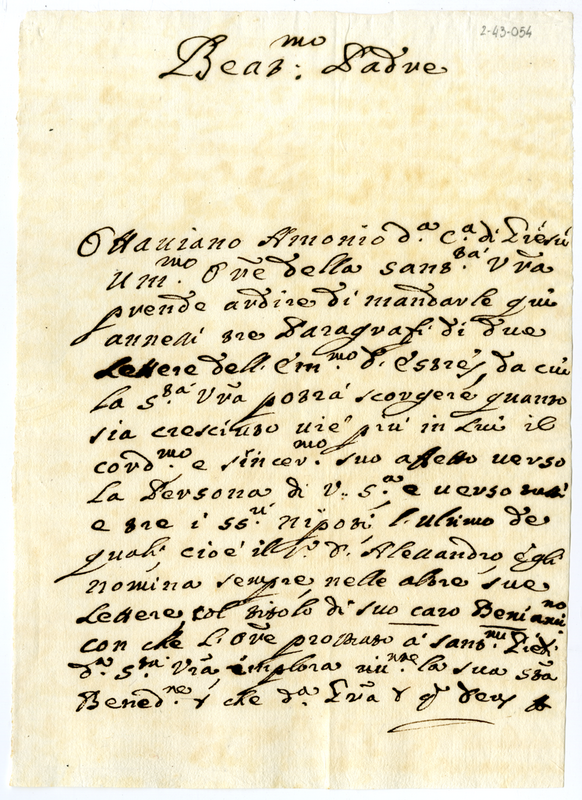 2-43-054
Beat.mo Padre
Ottaviano Antonio d.a C.a di Giesù
Um.mo Ore della Sant.tà Vra
prende ardire di mandarle qui
annessi tre Paragrafi di due
Lettere dell'Em.mo d'Estrés, da cui
la S.tà Vra potrà scorgere quanto
sia cresciuto vie più in Lui il
cord.mo e sincer.mo suo affetto verso
la Persona di V. S.a e verso tutti
e tre i SS.ri Nipoti, l'ultimo de
quali cioè il S.r D. Alessandro egli
nomina sempre nelle altre sue
Lettere col titolo di suo caro Beniamino
con che l'Ore prostrato a' sant.mi Piedi
d.a S.tà Vra implora um.nte la sua Sta
Bened.ne che d.a Gra